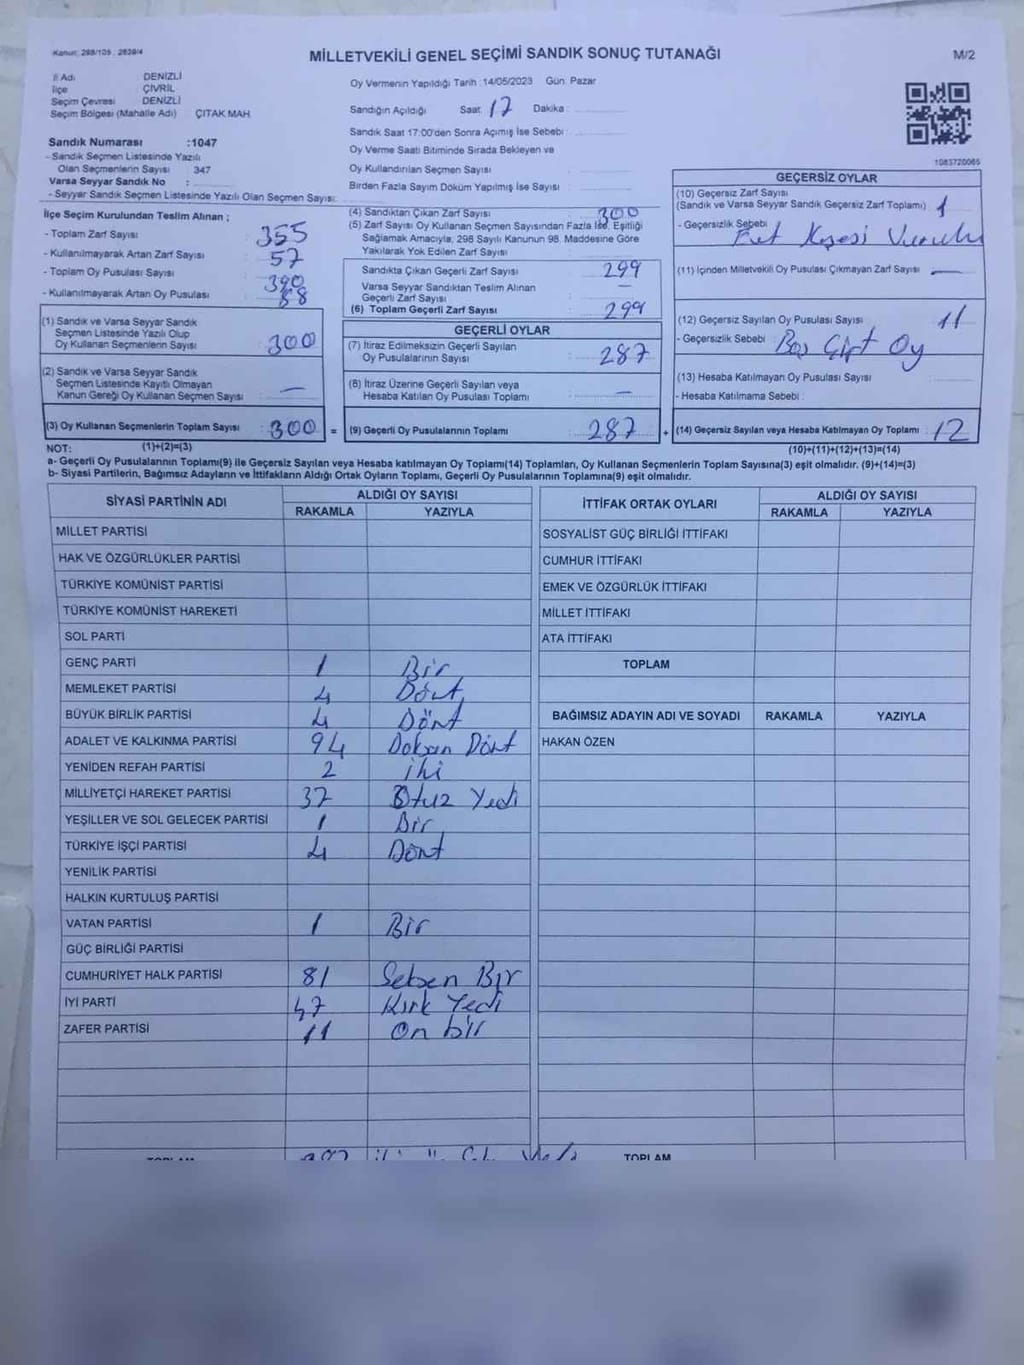 Kanun: 298/105 : 2839/4
MİLLETVEKİLİ GENEL SEÇİMİ SANDIK SONUÇ TUTANAĞI
M/2
İl Adı DENİZLİ
İlçe ÇİVRİL
Seçim Çevresi DENİZLİ
Seçim Bölgesi (Mahalle Adı) : ÇITAK MAH.
Sandık Numarası :1047
- Sandık Seçmen Listesinde Yazılı
Olan Seçmenlerin Sayısı : 347
Varsa Seyyar Sandık No :
- Seyyar Sandık Seçmen Listesinde Yazılı Olan Seçmen Sayısı:
Oy Vermenin Yapıldığı Tarih :14/05/2023 Gün: Pazar
Sandığın Açıldığı Saat: 17 Dakika :
Sandık Saat 17:00'den Sonra Açımış İse Sebebi :
Oy Verme Saati Bitiminde Sırada Bekleyen ve
Oy Kullandırılan Seçmen Sayısı :
Birden Fazla Sayım Döküm Yapılmış İse Sayısı :
1083720065
İlçe Seçim Kurulundan Teslim Alınan ;
- Toplam Zarf Sayısı : 355
- Kullanılmayarak Artan Zarf Sayısı : 57
- Toplam Oy Pusulası Sayısı : 390
- Kullanılmayarak Artan Oy Pusulası : 88
(1) Sandık ve Varsa Seyyar Sandık
Seçmen Listesinde Yazılı Olup
Oy Kullanan Seçmenlerin Sayısı : 300
(2) Sandık ve Varsa Seyyar Sandık
Seçmen Listesinde Kayıtlı Olmayan
Kanun Gereği Oy Kullanan Seçmen Sayısı : —
(3) Oy Kullanan Seçmenlerin Toplam Sayısı : 300 =
(1)+(2)=(3)
(4) Sandıktan Çıkan Zarf Sayısı : 300
(5) Zarf Sayısı Oy Kullanan Seçmen Sayısından Fazla İse, Eşitliği
Sağlamak Amacıyla, 298 Sayılı Kanunun 98. Maddesine Göre
Yakılarak Yok Edilen Zarf Sayısı :
Sandıkta Çıkan Geçerli Zarf Sayısı : 299
Varsa Seyyar Sandıktan Teslim Alınan
Geçerli Zarf Sayısı : —
(6) Toplam Geçerli Zarf Sayısı : 299
GEÇERLİ OYLAR
(7) İtiraz Edilmeksizin Geçerli Sayılan
Oy Pusulalarının Sayısı : 287
(8) İtiraz Üzerine Geçerli Sayılan veya
Hesaba Katılan Oy Pusulası Toplamı : —
(9) Geçerli Oy Pusulalarının Toplamı : 287 +
GEÇERSİZ OYLAR
(10) Geçersiz Zarf Sayısı
(Sandık ve Varsa Seyyar Sandık Geçersiz Zarf Toplamı) : 1
- Geçersizlik Sebebi :
(11) İçinden Milletvekili Oy Pusulası Çıkmayan Zarf Sayısı : —
(12) Geçersiz Sayılan Oy Pusulası Sayısı : 11
- Geçersizlik Sebebi : Boş Çift Oy
(13) Hesaba Katılmayan Oy Pusulası Sayısı :
- Hesaba Katılmama Sebebi :
(14) Geçersiz Sayılan veya Hesaba Katılmayan Oy Toplamı : 12
(10)+(11)+(12)+(13)=(14)
NOT:
a- Geçerli Oy Pusulalarının Toplamı(9) ile Geçersiz Sayılan veya Hesaba katılmayan Oy Toplamı(14) Toplamları, Oy Kullanan Seçmenlerin Toplam Sayısına(3) eşit olmalıdır. (9)+(14)=(3)
b- Siyasi Partilerin, Bağımsız Adayların ve İttifakların Aldığı Ortak Oyların Toplamı, Geçerli Oy Pusulalarının Toplamına(9) eşit olmalıdır.
SİYASİ PARTİNİN ADI ALDIĞI OY SAYISI
RAKAMLA YAZIYLA
MİLLET PARTİSİ
HAK VE ÖZGÜRLÜKLER PARTİSİ
TÜRKİYE KOMÜNİST PARTİSİ
TÜRKİYE KOMÜNİST HAREKETİ
SOL PARTİ
GENÇ PARTİ 1 Bir
MEMLEKET PARTİSİ 4 Dört
BÜYÜK BİRLİK PARTİSİ 4 Dört
ADALET VE KALKINMA PARTİSİ 94 Doksan Dört
YENİDEN REFAH PARTİSİ 2 iki
MİLLİYETÇİ HAREKET PARTİSİ 37 Otuz Yedi
YEŞİLLER VE SOL GELECEK PARTİSİ 1 Bir
TÜRKİYE İŞÇİ PARTİSİ 4 Dört
YENİLİK PARTİSİ
HALKIN KURTULUŞ PARTİSİ
VATAN PARTİSİ 1 Bir
GÜÇ BİRLİĞİ PARTİSİ
CUMHURİYET HALK PARTİSİ 81 Seksen Bir
İYİ PARTİ 47 Kırk Yedi
ZAFER PARTİSİ 11 On bir
TOPLAM
İTTİFAK ORTAK OYLARI ALDIĞI OY SAYISI
RAKAMLA YAZIYLA
SOSYALİST GÜÇ BİRLİĞİ İTTİFAKI
CUMHUR İTTİFAKI
EMEK VE ÖZGÜRLÜK İTTİFAKI
MİLLET İTTİFAKI
ATA İTTİFAKI
TOPLAM
BAĞIMSIZ ADAYIN ADI VE SOYADI RAKAMLA YAZIYLA
HAKAN ÖZEN
TOPLAM